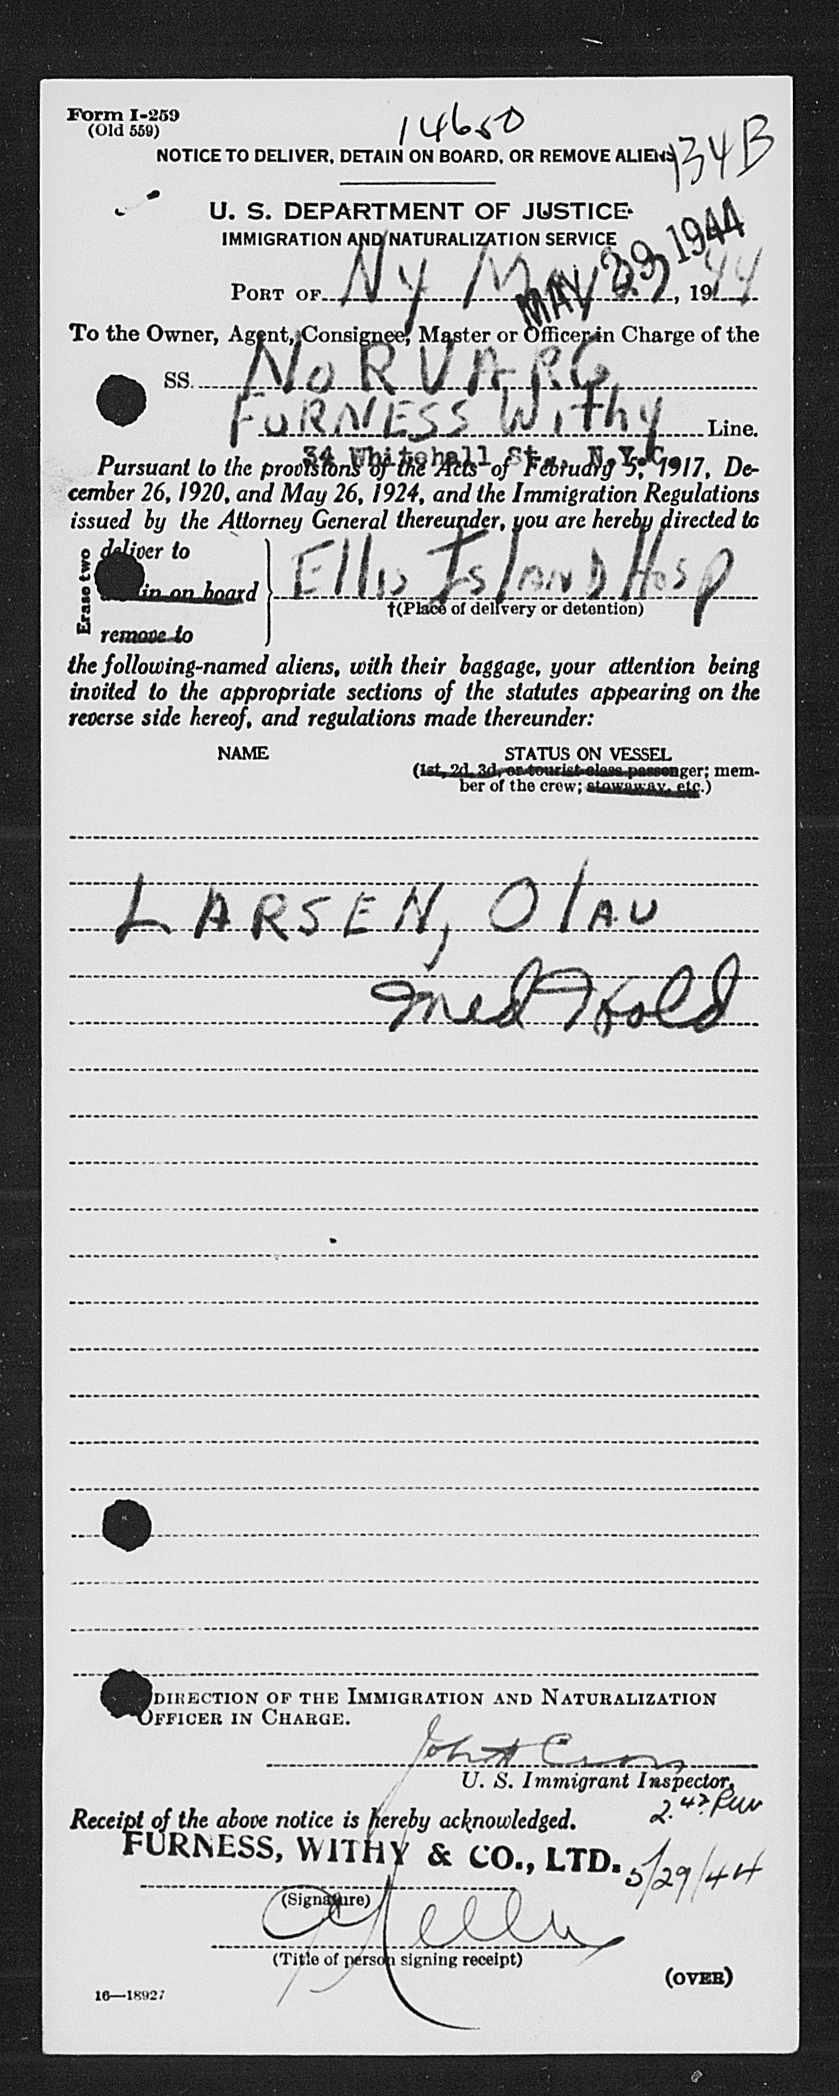 Form I-259
(Old 559)
14650
134B
NOTICE TO DELIVER, DETAIN ON BOARD, OR REMOVE ALIENS
U. S. DEPARTMENT OF JUSTICE
IMMIGRATION AND NATURALIZATION SERVICE
MAY 29 1944
PORT OF NY May 29, 1944
To the Owner, Agent, Consignee, Master or Officer in Charge of the
SS. NORVARG
FURNESS Withy Line.
34 Whitehall St., N.Y.C.
Pursuant to the provisions of the Acts of February 5, 1917, De-
cember 26, 1920, and May 26, 1924, and the Immigration Regulations
issued by the Attorney General thereunder, you are hereby directed to
Erase two
deliver to
in on board
remove to
Ellis Island Hosp
†(Place of delivery or detention)
the following-named aliens, with their baggage, your attention being
invited to the appropriate sections of the statutes appearing on the
reverse side hereof, and regulations made thereunder:
NAME STATUS ON VESSEL
(1st, 2d, 3d, or tourist class passenger; mem-
ber of the crew; stowaway, etc.)
LARSEN, Olau
Med Hold
DIRECTION OF THE IMMIGRATION AND NATURALIZATION
OFFICER IN CHARGE.
U. S. Immigrant Inspector.
Receipt of the above notice is hereby acknowledged.
FURNESS, WITHY & CO., LTD.
5/29/44
(Signature)
(Title of person signing receipt)
(OVER)
16—18927